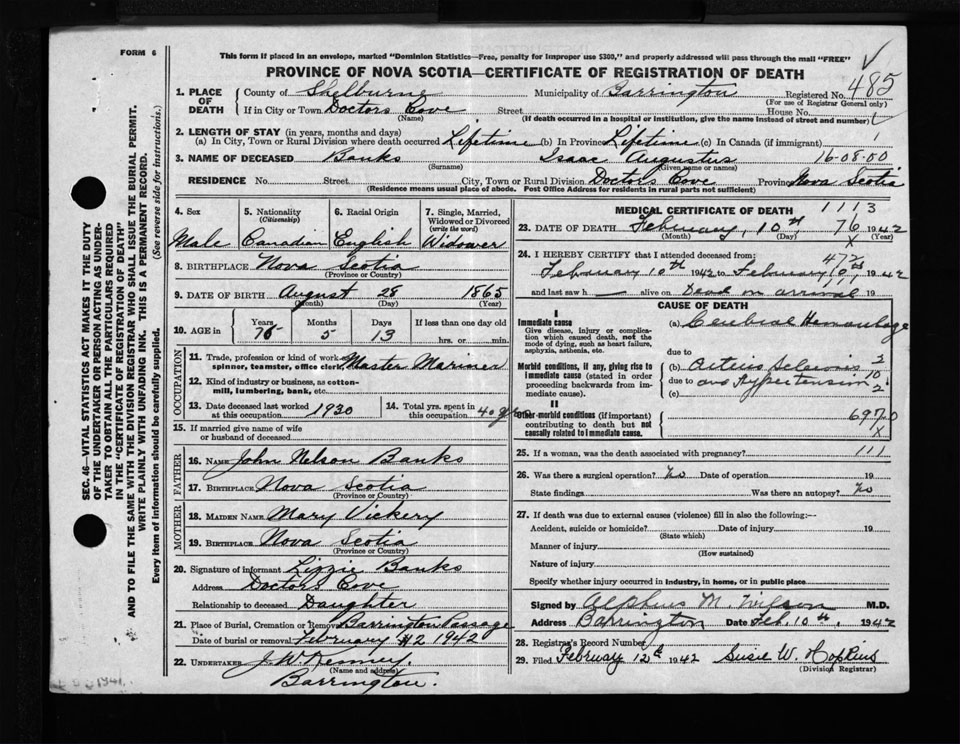 FORM 6
This form if placed in an envelope, marked "Dominion Statistics—Free, penalty for improper use $300," and properly addressed will pass through the mail "FREE"
PROVINCE OF NOVA SCOTIA—CERTIFICATE OF REGISTRATION OF DEATH
485
1. PLACE OF DEATH County of Shelburne Municipality of Barrington Registered No.
(For use of Registrar General only)
If in City or Town Doctors Cove Street House No.
(Name) (If death occurred in a hospital or institution, give the name instead of street and number)
2. LENGTH OF STAY (in years, months and days)
(a) In City, Town or Rural Division where death occurred Lifetime (b) In Province Lifetime (c) In Canada (if immigrant)
3. NAME OF DECEASED Banks Isaac Augustus 16-08-00
(Surname) (Given name or names)
RESIDENCE No. Street City, Town or Rural Division Doctors Cove Province Nova Scotia
(Residence means usual place of abode. Post Office Address for residents in rural parts not sufficient)
4. Sex 5. Nationality (Citizenship) 6. Racial Origin 7. Single, Married, Widowed or Divorced (write the word)
Male Canadian English Widower
8. BIRTHPLACE Nova Scotia
(Province or Country)
9. DATE OF BIRTH August 28 1865
(Month) (Day) (Year)
10. AGE in Years Months Days If less than one day old
76 5 13 hrs. or min.
OCCUPATION
11. Trade, profession or kind of work as spinner, teamster, office clerk Master Mariner
12. Kind of industry or business, as cotton-mill, lumbering, bank, etc.
13. Date deceased last worked at this occupation 1930 14. Total yrs. spent in this occupation 40
15. If married give name of wife or husband of deceased
FATHER
16. NAME John Nelson Banks
17. BIRTHPLACE Nova Scotia
(Province or Country)
MOTHER
18. MAIDEN NAME Mary Vickery
19. BIRTHPLACE Nova Scotia
(Province or Country)
20. Signature of informant Lizzie Banks
Address Doctors Cove
Relationship to deceased Daughter
21. Place of Burial, Cremation or Removal Barrington Passage
Date of burial or removal February 12 1942
22. UNDERTAKER J. W. Kenney.
(Name and address)
Barrington.
1941
MEDICAL CERTIFICATE OF DEATH 1113
23. DATE OF DEATH February, 10th 76 1942
(Month) (Day) X (Year)
24. I HEREBY CERTIFY that I attended deceased from: 472
February 10th 1942 to February 10th, 1942
and last saw h — alive on Dead on arrival 19
CAUSE OF DEATH
I
Immediate cause
Give disease, injury or complication which caused death, not the mode of dying, such as heart failure, asphyxia, asthenia, etc.
(a) Cerebral Hemorrhage
due to
Morbid conditions, if any, giving rise to immediate cause (stated in order proceeding backwards from immediate cause).
(b) Arterio Sclerosis
due to and Hypertension
(c)
II
Other morbid conditions (if important) contributing to death but not causally related to immediate cause.
X
25. If a woman, was the death associated with pregnancy? 111
26. Was there a surgical operation? No Date of operation 19
State findings Was there an autopsy? No
27. If death was due to external causes (violence) fill in also the following:—
Accident, suicide or homicide? Date of injury 19
(State which)
Manner of injury
(How sustained)
Nature of injury
Specify whether injury occurred in industry, in home, or in public place
Signed by Alphus M Wilson M.D.
Address Barrington Date Feb. 10th, 1942
28. Registrar's Record Number
29. Filed February 12th 1942 Susie W. Hopkins
(Division Registrar)
SEC. 46—VITAL STATISTICS ACT MAKES IT THE DUTY
OF THE UNDERTAKER OR PERSON ACTING AS UNDER-
TAKER TO OBTAIN ALL THE PARTICULARS REQUIRED
IN THE "CERTIFICATE OF REGISTRATION OF DEATH"
AND TO FILE THE SAME WITH THE DIVISION REGISTRAR WHO SHALL ISSUE THE BURIAL PERMIT.
WRITE PLAINLY WITH UNFADING INK. THIS IS A PERMANENT RECORD.
Every item of information should be carefully supplied. (See reverse side for instructions.)